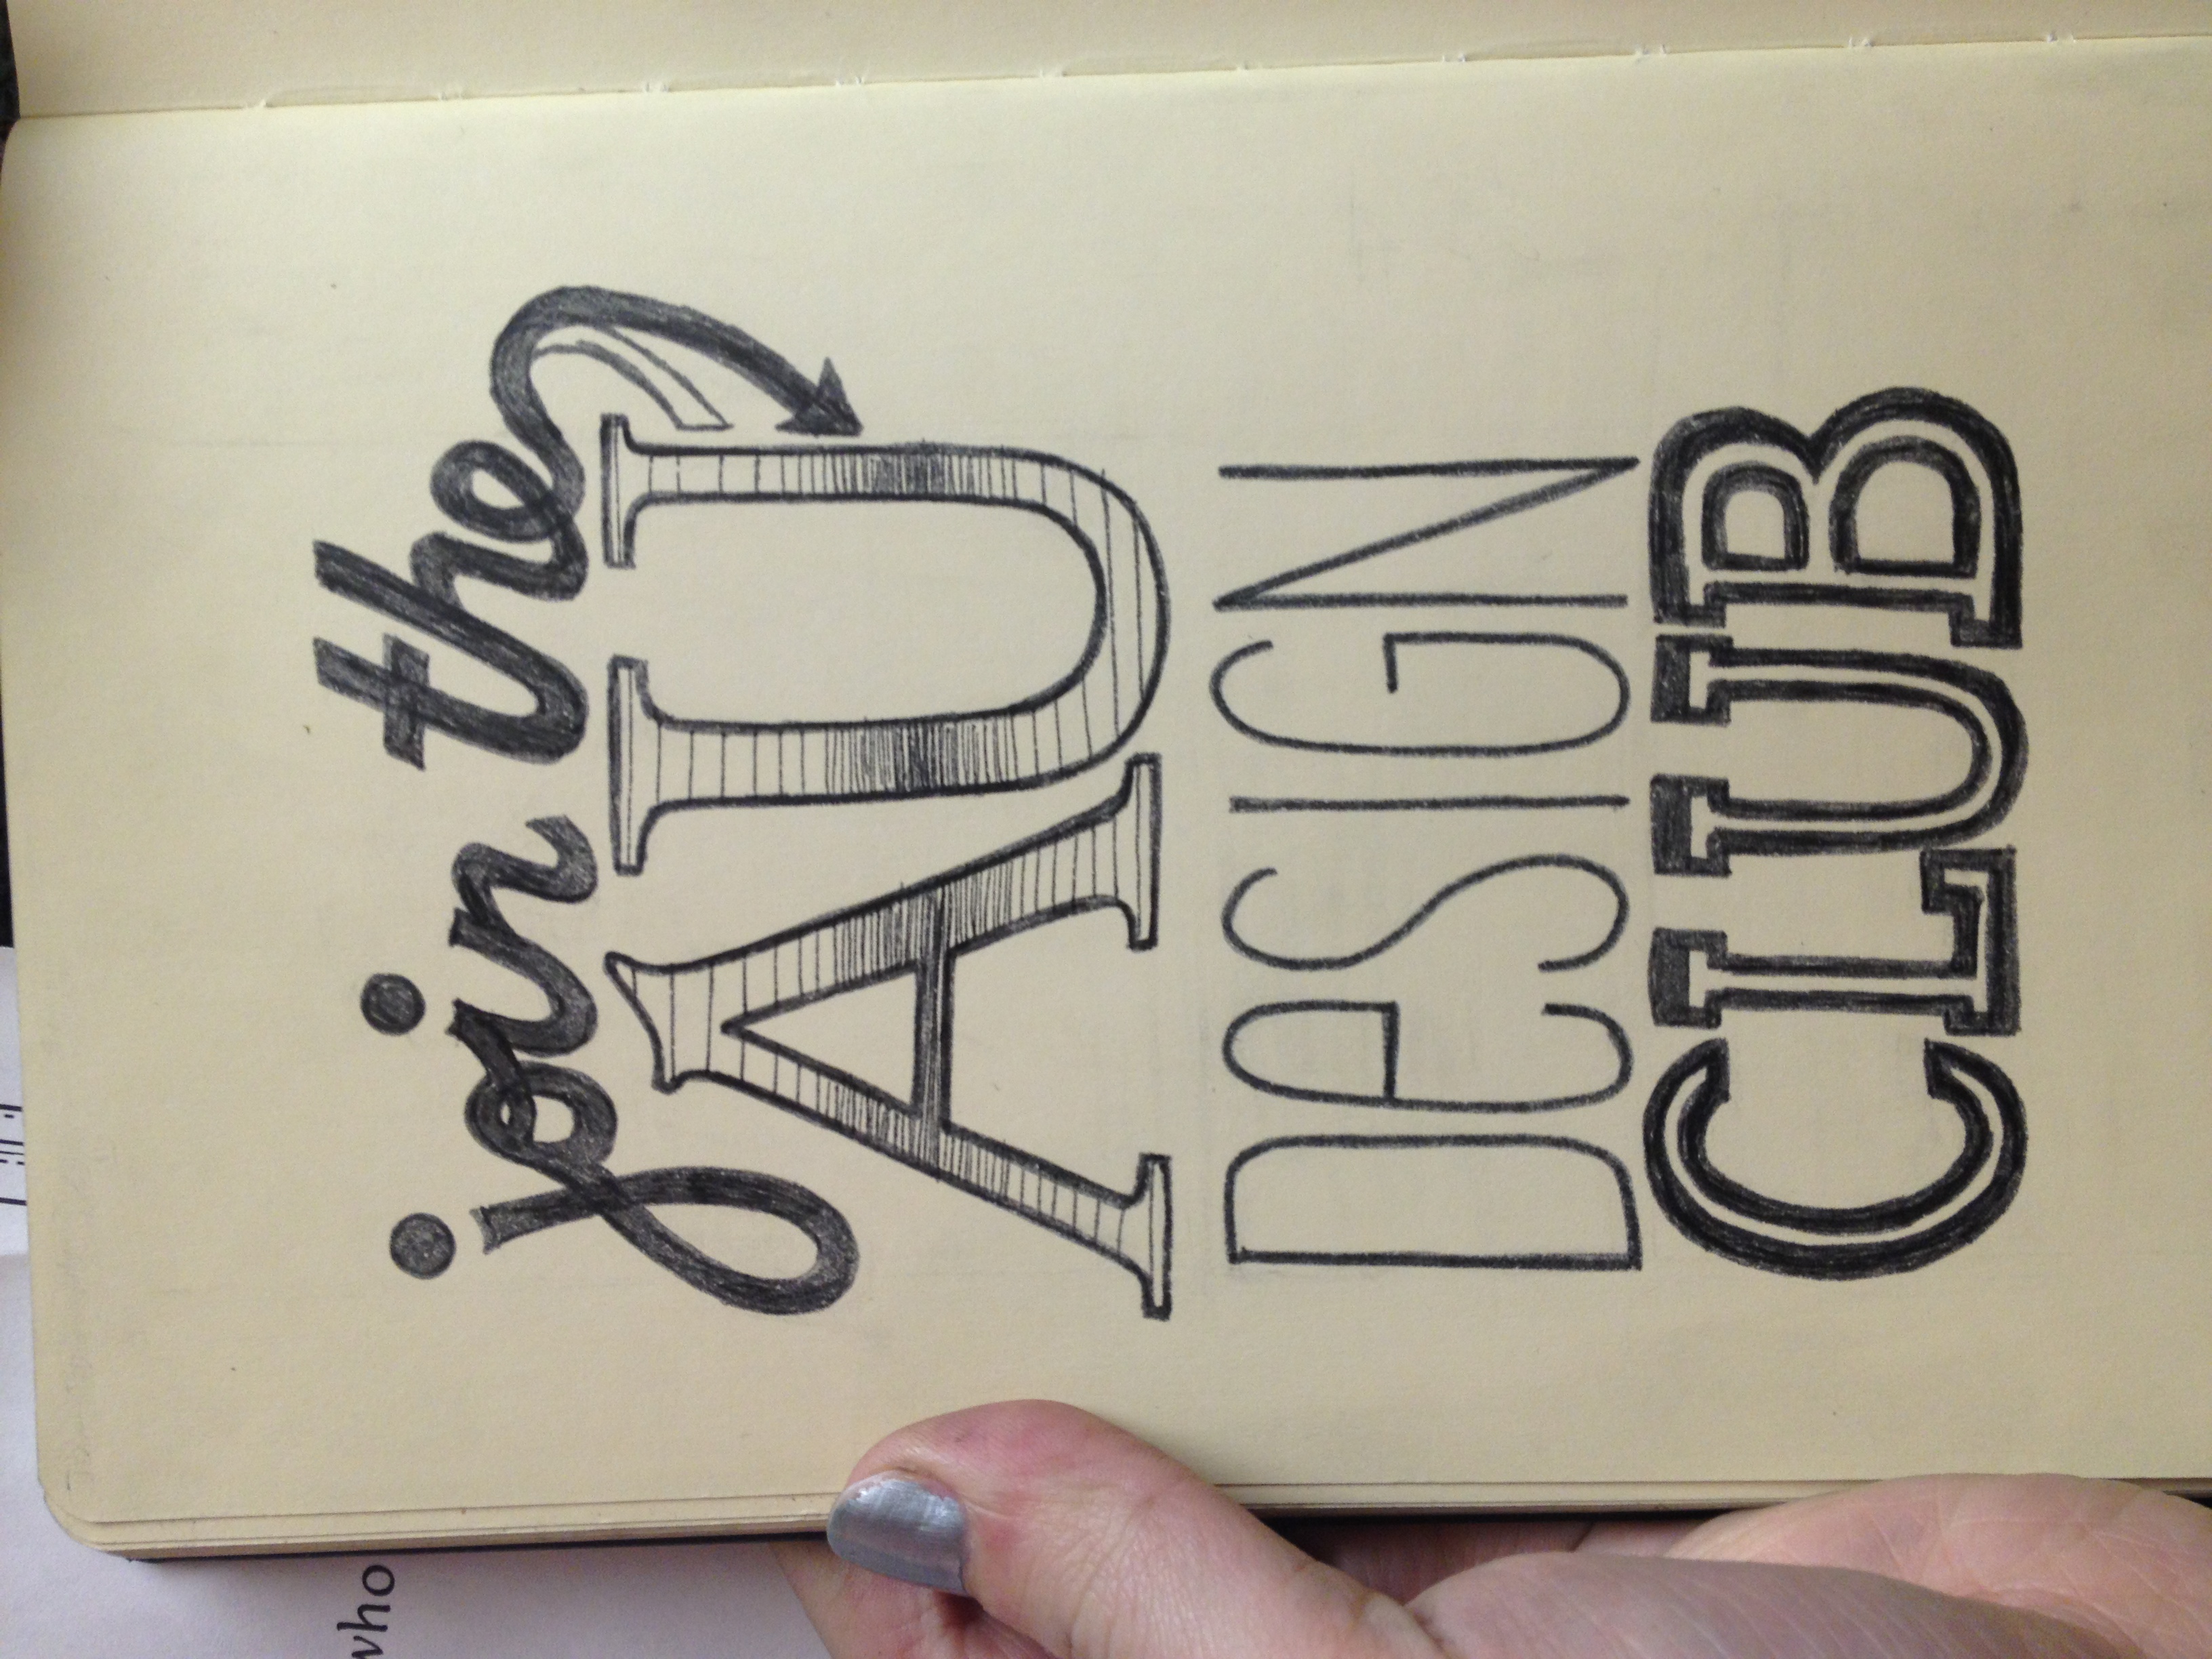 who
join the
AU
DeSIGN
CLUB